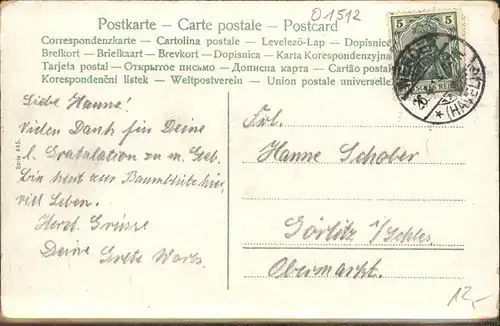 Postkarte - Carte postale - Postcard
O1512
Correspondenzkarte - Cartolina postale - Levelező-Lap - Dopisnice
Brefkort - Briefkaart - Brevkort - Dopisnica - Karta Korespondenzyjna
Tarjeta postal - Открытое письмо - Дописна карта - Cartão postal
Korespondenční listek - Weltpostverein - Union postale universelle
5 5
DEUTSCHES REICH
Serie 445.
Liebe Hanne!
Vielen Dank für Deine
l. Gratulation zu m. Geb.
bin heut zur Baumblüte hier,
viel Leben.
Herzl. Grüsse
Deine Grete
Frl.
Hanne Schober
Görlitz i/Schles.
Obermarkt.
12,-